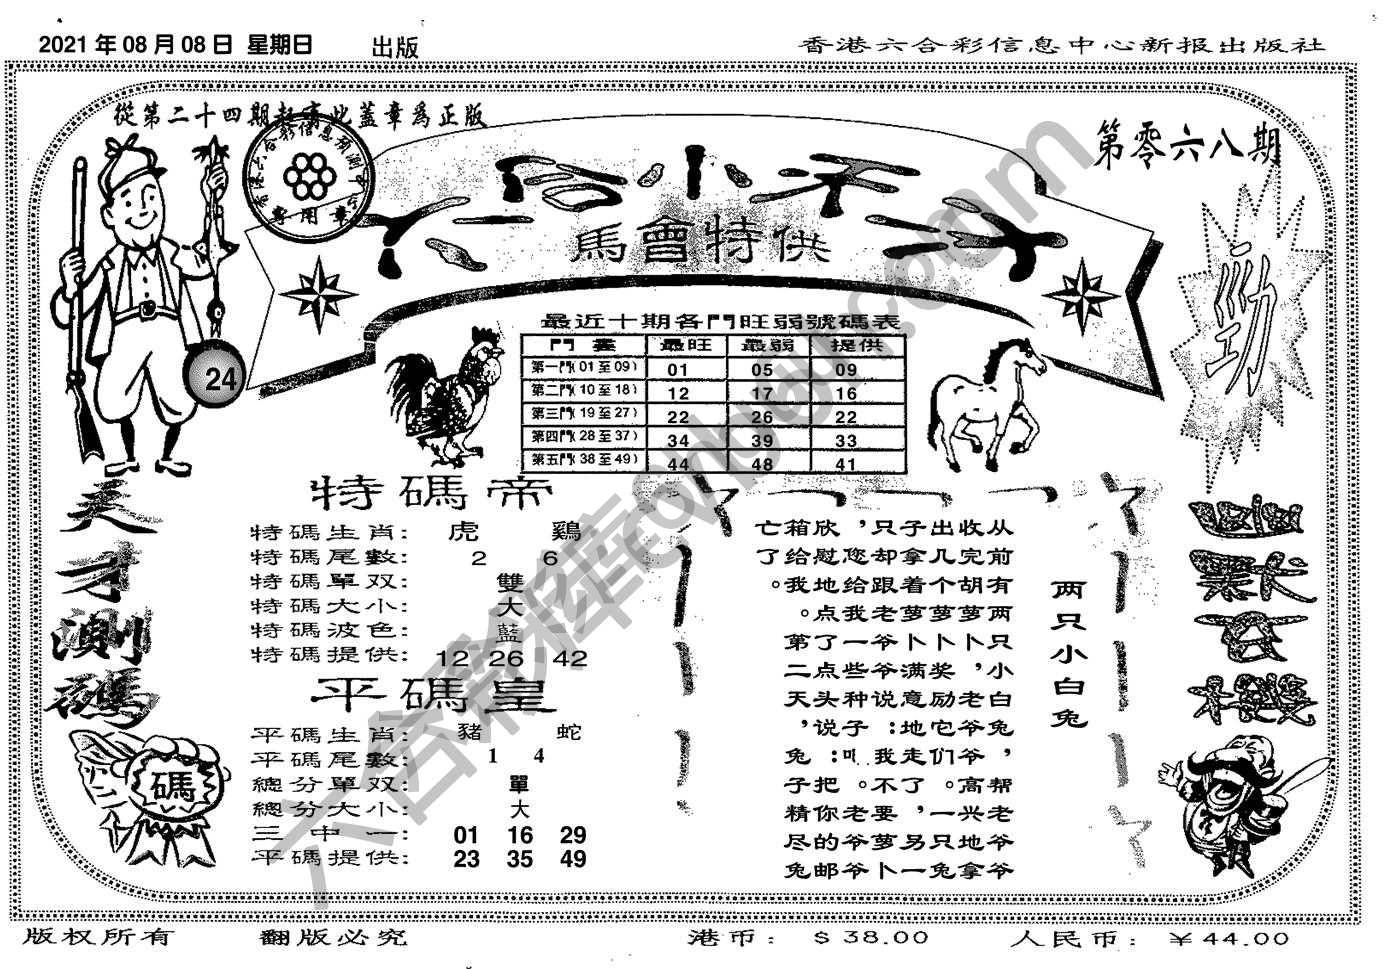 2021年08月08日 星期日 出版
香港六合彩信息中心新报出版社
從第二十四期起
此蓋章爲正版
第零六八期
馬會特供
勁
24
最近十期各門旺弱號碼表
門 最旺 最弱 提供
第一門(01至09) 01 05 09
第二門(10至18) 12 17 16
第三門(19至27) 22 26 22
第四門(28至37) 34 39 33
第五門(38至49) 44 48 41
天才測碼
特碼帝
特碼生肖: 虎 鷄
特碼尾數: 2 6
特碼單双: 雙
特碼大小: 大
特碼波色: 藍
特碼提供: 12 26 42
平碼皇
平碼生肖: 豬 蛇
平碼尾數: 1 4
總分單双: 單
總分大小: 大
三中一: 01 16 29
平碼提供: 23 35 49
碼
两只小白兔
从前有两只小白兔，帮老爷爷
收完胡萝卜，老爷爷高兴地拿
出几个萝卜奖励它们。一只兔
子拿着萝卜满意地走了，另一
只却跟老爷爷说：我不要萝卜
，您给我一些种子叫。老爷爷
欣慰地点了点头说：把你的邮
箱给我。第二天，兔子精尽兔
亡了。
版权所有 翻版必究 港币：$38.00 人民币：￥44.00